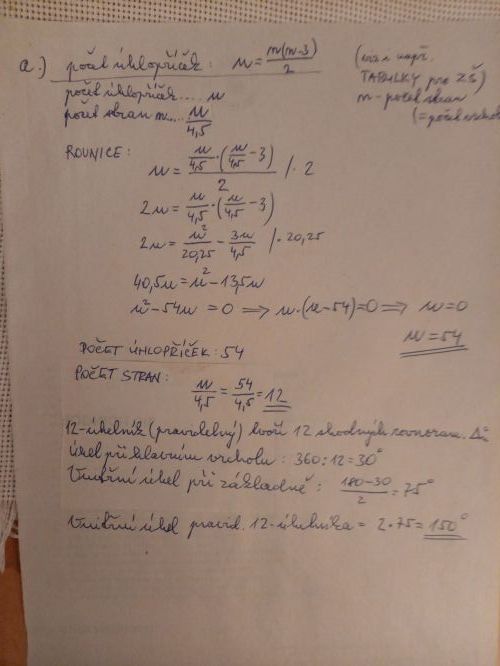 a.) počet úhlopříček: u = m(m-3)/2 (viz např.
TABULKY pro ZŠ)
počet úhlopříček .... u m - počet stran
počet stran m .... u/4,5 (= počet vrcholů
ROVNICE: u = (u/4,5 · (u/4,5 - 3))/2 /· 2
2u = u/4,5 · (u/4,5 - 3)
2u = u²/20,25 - 3u/4,5 /· 20,25
40,5u = u² - 13,5u
u² - 54u = 0 ⟹ u·(u-54)=0 ⟹ u=0
u = 54
POČET ÚHLOPŘÍČEK: 54
POČET STRAN:
u/4,5 = 54/4,5 = 12
12-úhelník (pravidelný) tvoří 12 shodných rovnoram. Δů
úhel při hlavním vrcholu: 360:12 = 30°
Vnitřní úhel při základně: (180-30)/2 = 75°
Vnitřní úhel pravid. 12-úhelníka = 2·75 = 150°